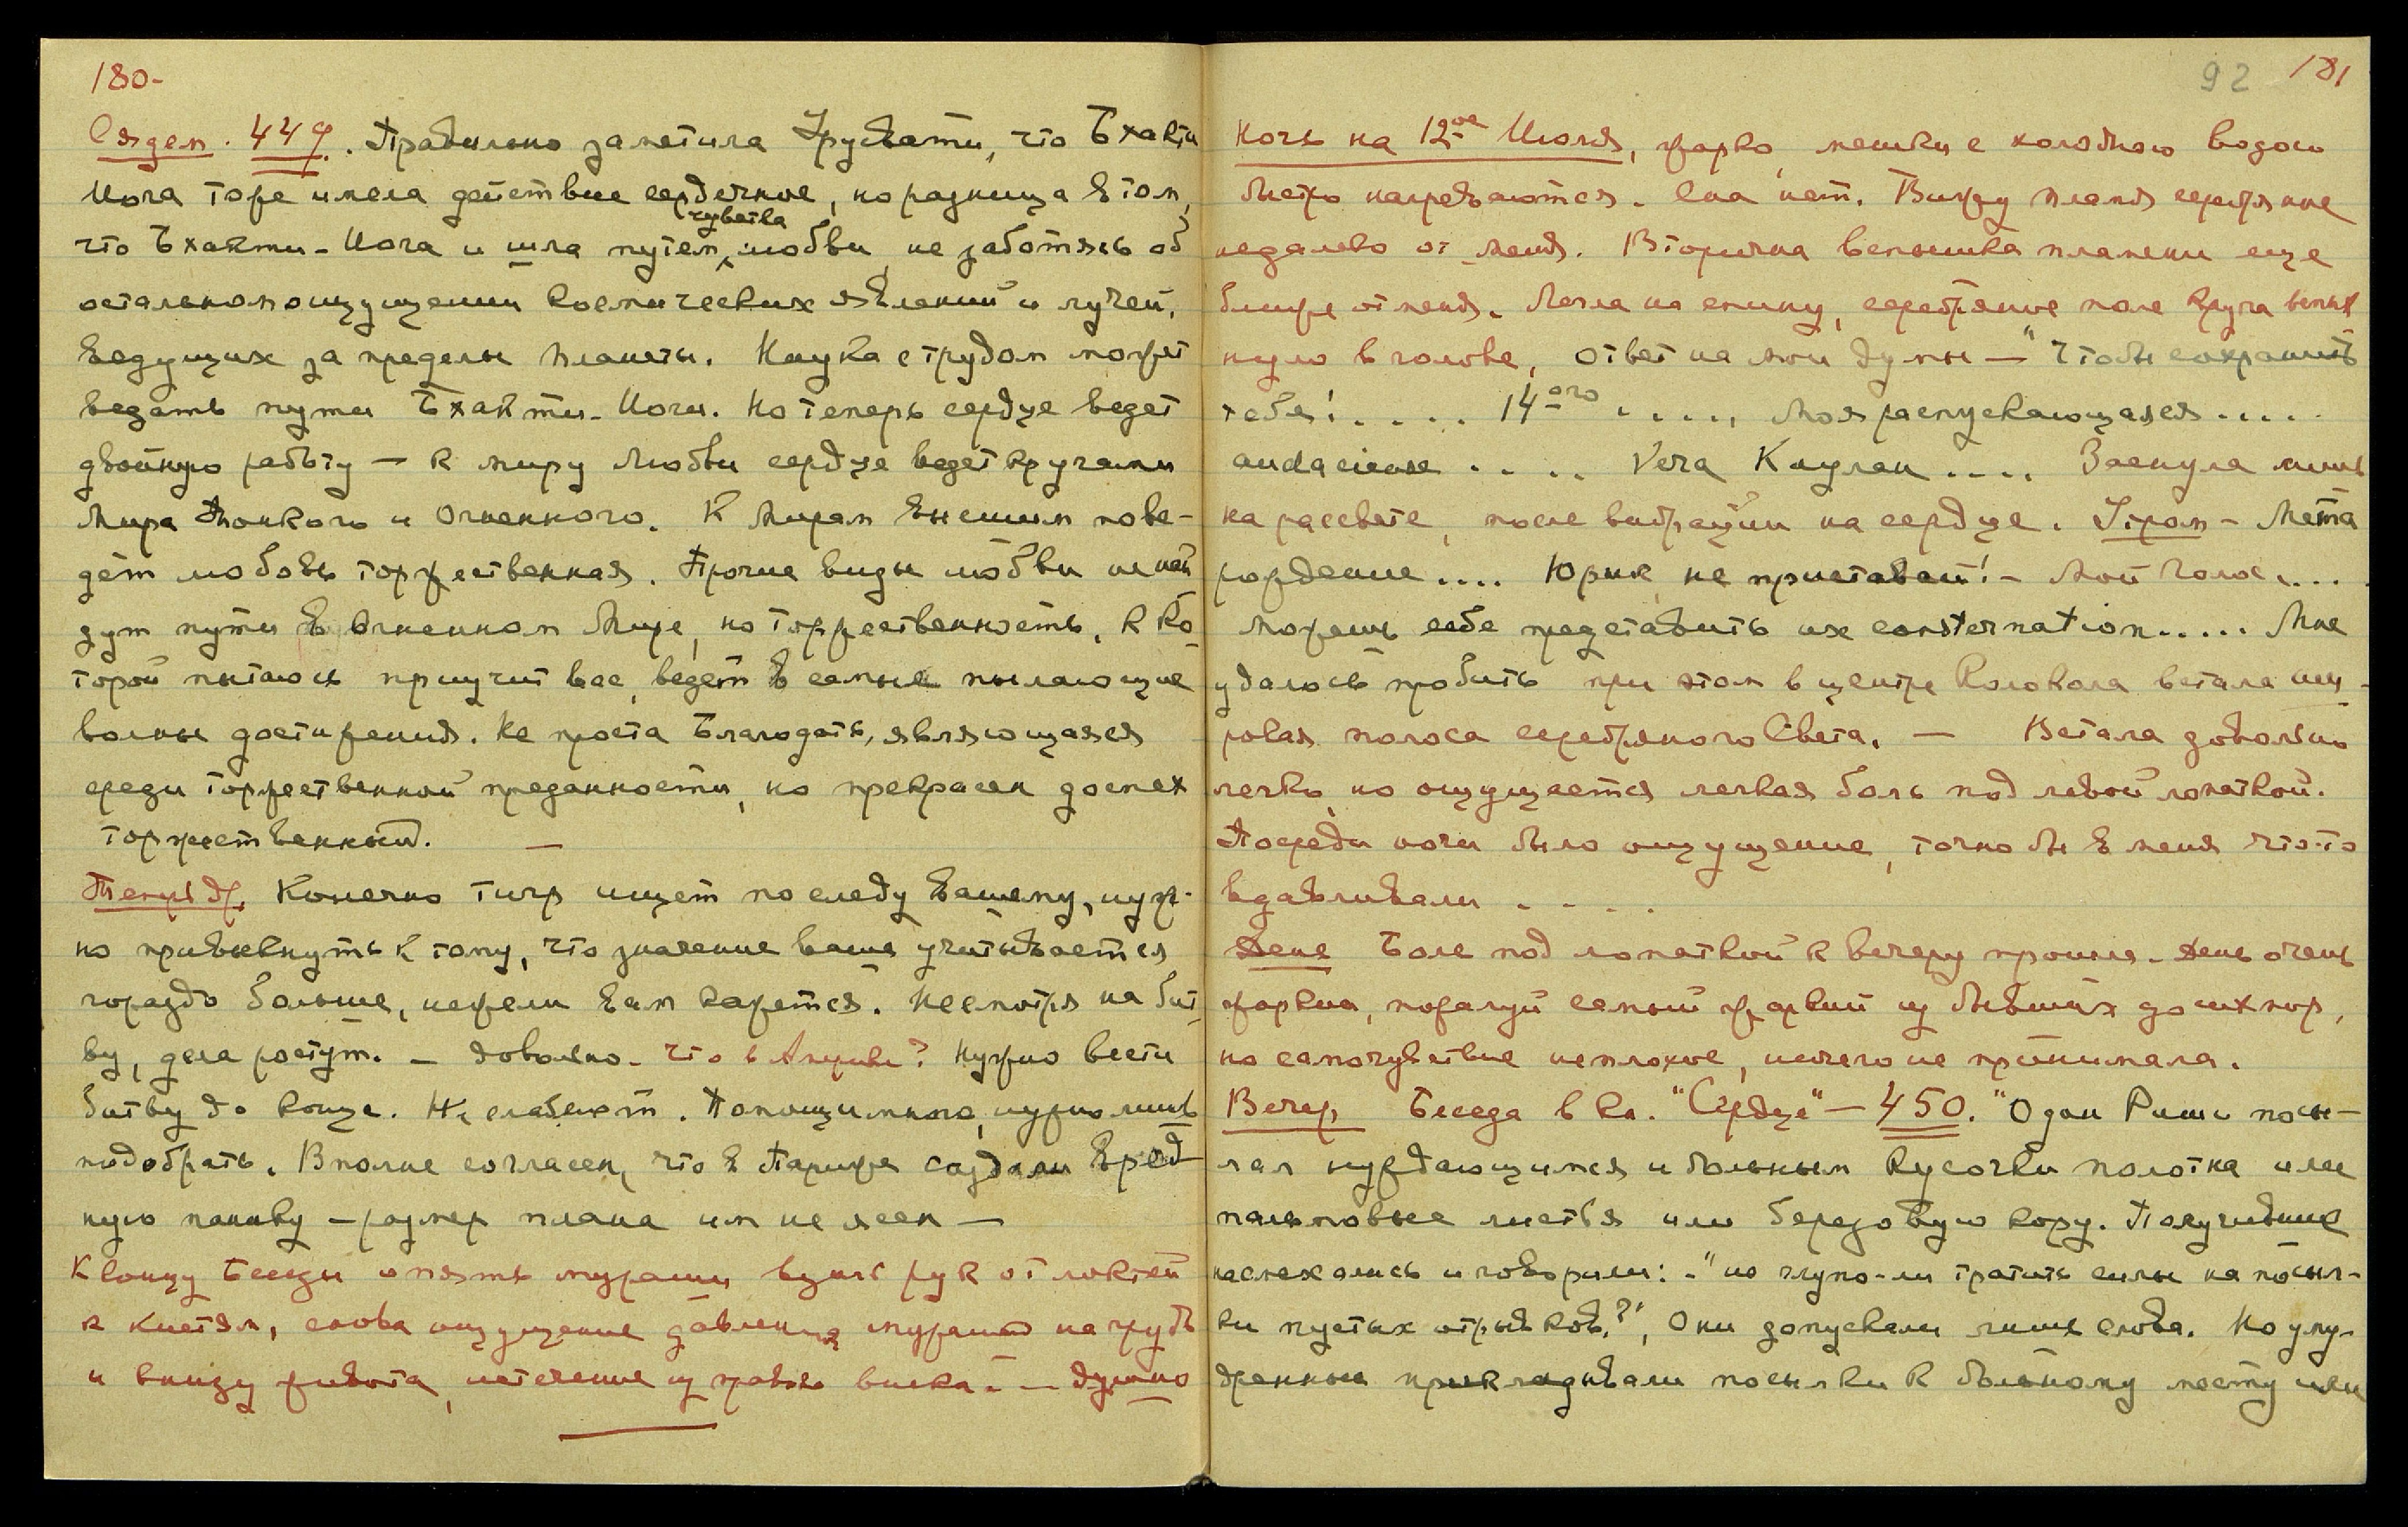 180-
Сядем. 449. Правильно заметила Урусвати, что Бхакти
Йога тоже имела действие сердечное, но разница в том,
чувства
что Бхакти-Йога и шла путем любви, не заботясь об
остальном ощущении космических явлений и лучей,
ведущих за пределы планеты. Наука с трудом может
ведать пути Бхакти-Йоги. Но теперь сердце ведет
двойную работу — к миру Любви сердце ведет кругами
Мира Тонкого и Огненного. К Мирам Высшим пове-
дет любовь торжественная. Прочие виды любви не най
дут пути в Огненном Мире, но торжественность, к ко
торой пытаюсь приучит вас, ведет в самые пылающие
волны достижения. Не проста Благодать, являющаяся
среди торжественной преданности, но прекрасен доспех
торжественный. —
Теперь др. Конечно тигр ищет по следу Вашему, нуж-
но привыкнуть к тому, что значение ваше учитывается
гораздо больше, нежели Вам кажется. Несмотря на бит
ву, дела ростут. — Довольно. Что в Америке? Нужно вести
битву до конца. Не слабеют. Помощи много, нужно лишь
подобрать. Вполне согласен, что в Париже создали вред
ную панику — размер плана им не ясен —
К концу Беседы опять мураши внутрь рук от локтей
к кистям, снова ощущение давления мурашей на грудь
и внизу живота, истечение из правого виска. — Душно
92 181
Ночь на 12ое Июля, жарко, мешки с холодною водою
быстро нагреваются. Сна нет. Вижу пламя серебряное
недалеко от меня. Вторична вспышка пламени еще
ближе от меня. Легла на спину, серебряное поле круга вспых
нуло в голове, ответ на мои думы — "Чтобы сохранить
тебя! . . . . 14ого . . . . , Моя распускающаяся . . . .
audacieuse . . . . Vera Каулан . . . . Заснула лишь
на рассвете, после вибраций на сердце. Утром - Мета
рождение . . . . Юрик, не приставай! - Мой голос . . . .
Можешь себе представить их consternation . . . . . Мне
удалось пробить при этом в центре Колокола встала ши-
рокая полоса серебряного Света. — Встала довольно
легко, но ощущается легкая боль под левой лопаткой.
Посреди ночи было ощущение, точно бы в меня что-то
вдавливали . . . .
День Боль под лопаткой к вечеру прошла. День очень
жаркий, пожалуй самый жаркий из бывших до сих пор,
но самочувствие неплохое, ничего не принимала.
Вечер Беседа в кн. "Сердце" — 450. "Один Риши посы-
лал нуждающимся и больным кусочки полотна или
пальмовые листья или березовую кору. Получившие
насмехались и говорили: - "не глупо-ли тратить силы на посыл-
ки пустых отрывков?", Они допускали лишь слова. Но уму-
дренные прикладывали посылки к больному месту или